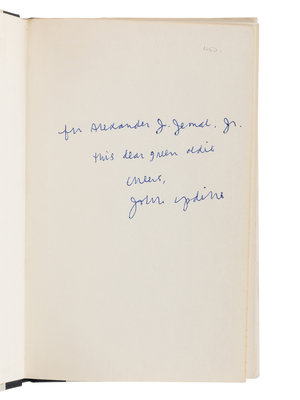 for Alexander J. Jemal, Jr.
this dear green oldie
Cheers,
John Updike